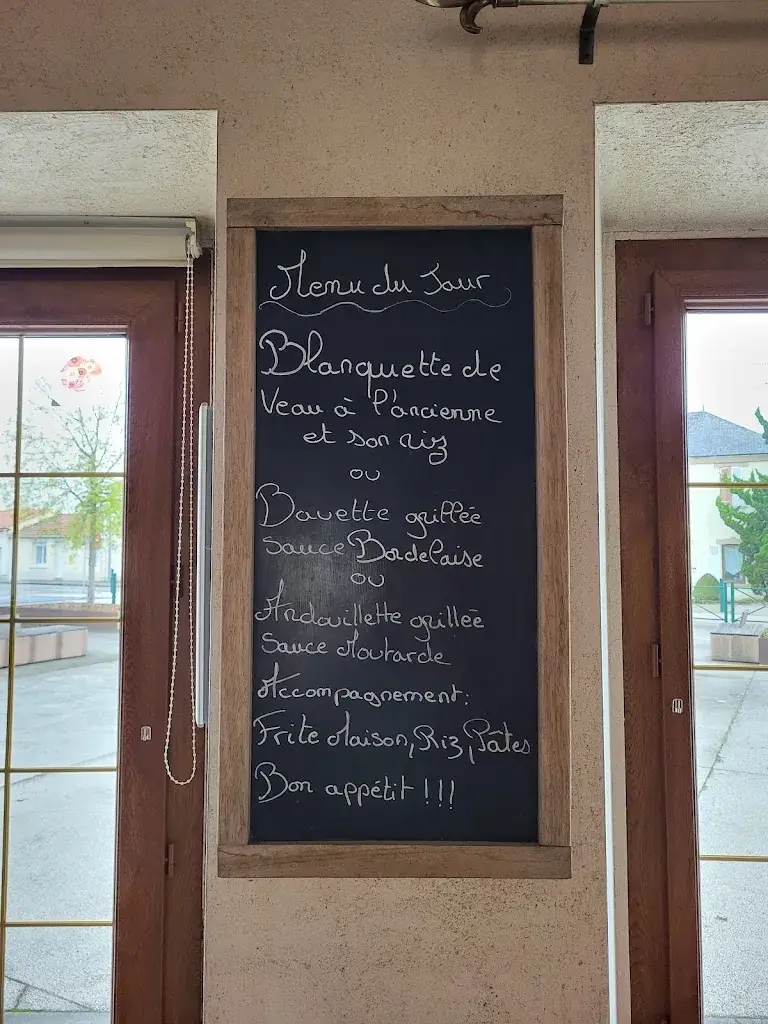 Menu du Jour
Blanquette de
Veau à l'ancienne
et son riz
ou
Bavette grillée
sauce Bordelaise
ou
Andouillette grillée
Sauce Moutarde
Accompagnement:
Frite Maison, Riz, Pâtes
Bon appétit !!!